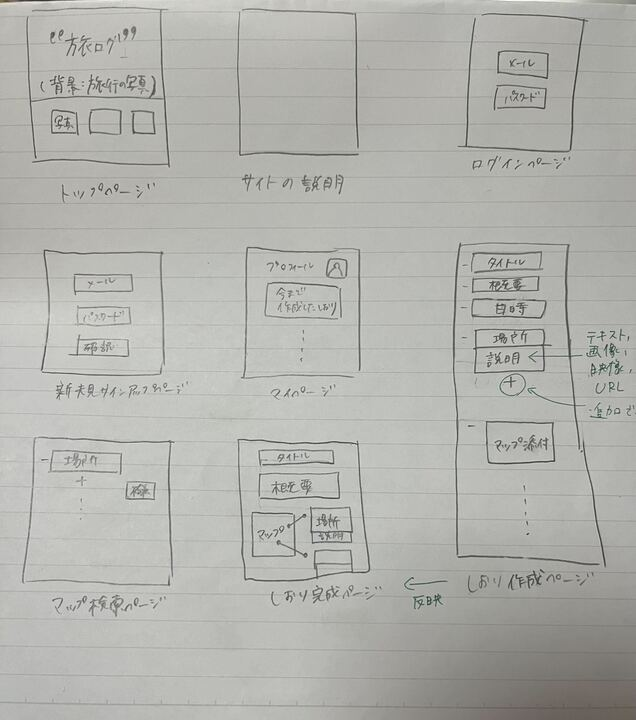 "旅ログ"
(背景:旅行の写真)
写真
トップページ
サイトの説明
メール
パスワード
ログインページ
メール
パスワード
確認
新規サインアップページ
プロフィール
今まで
作成したしおり
マイページ
タイトル
概要
日時
場所
説明
+
マップ添付
しおり作成ページ
テキスト,
画像,
映像,
URL
追加で
場所
+
検索
マップ検索ページ
タイトル
概要
マップ
場所
説明
しおり完成ページ
反映